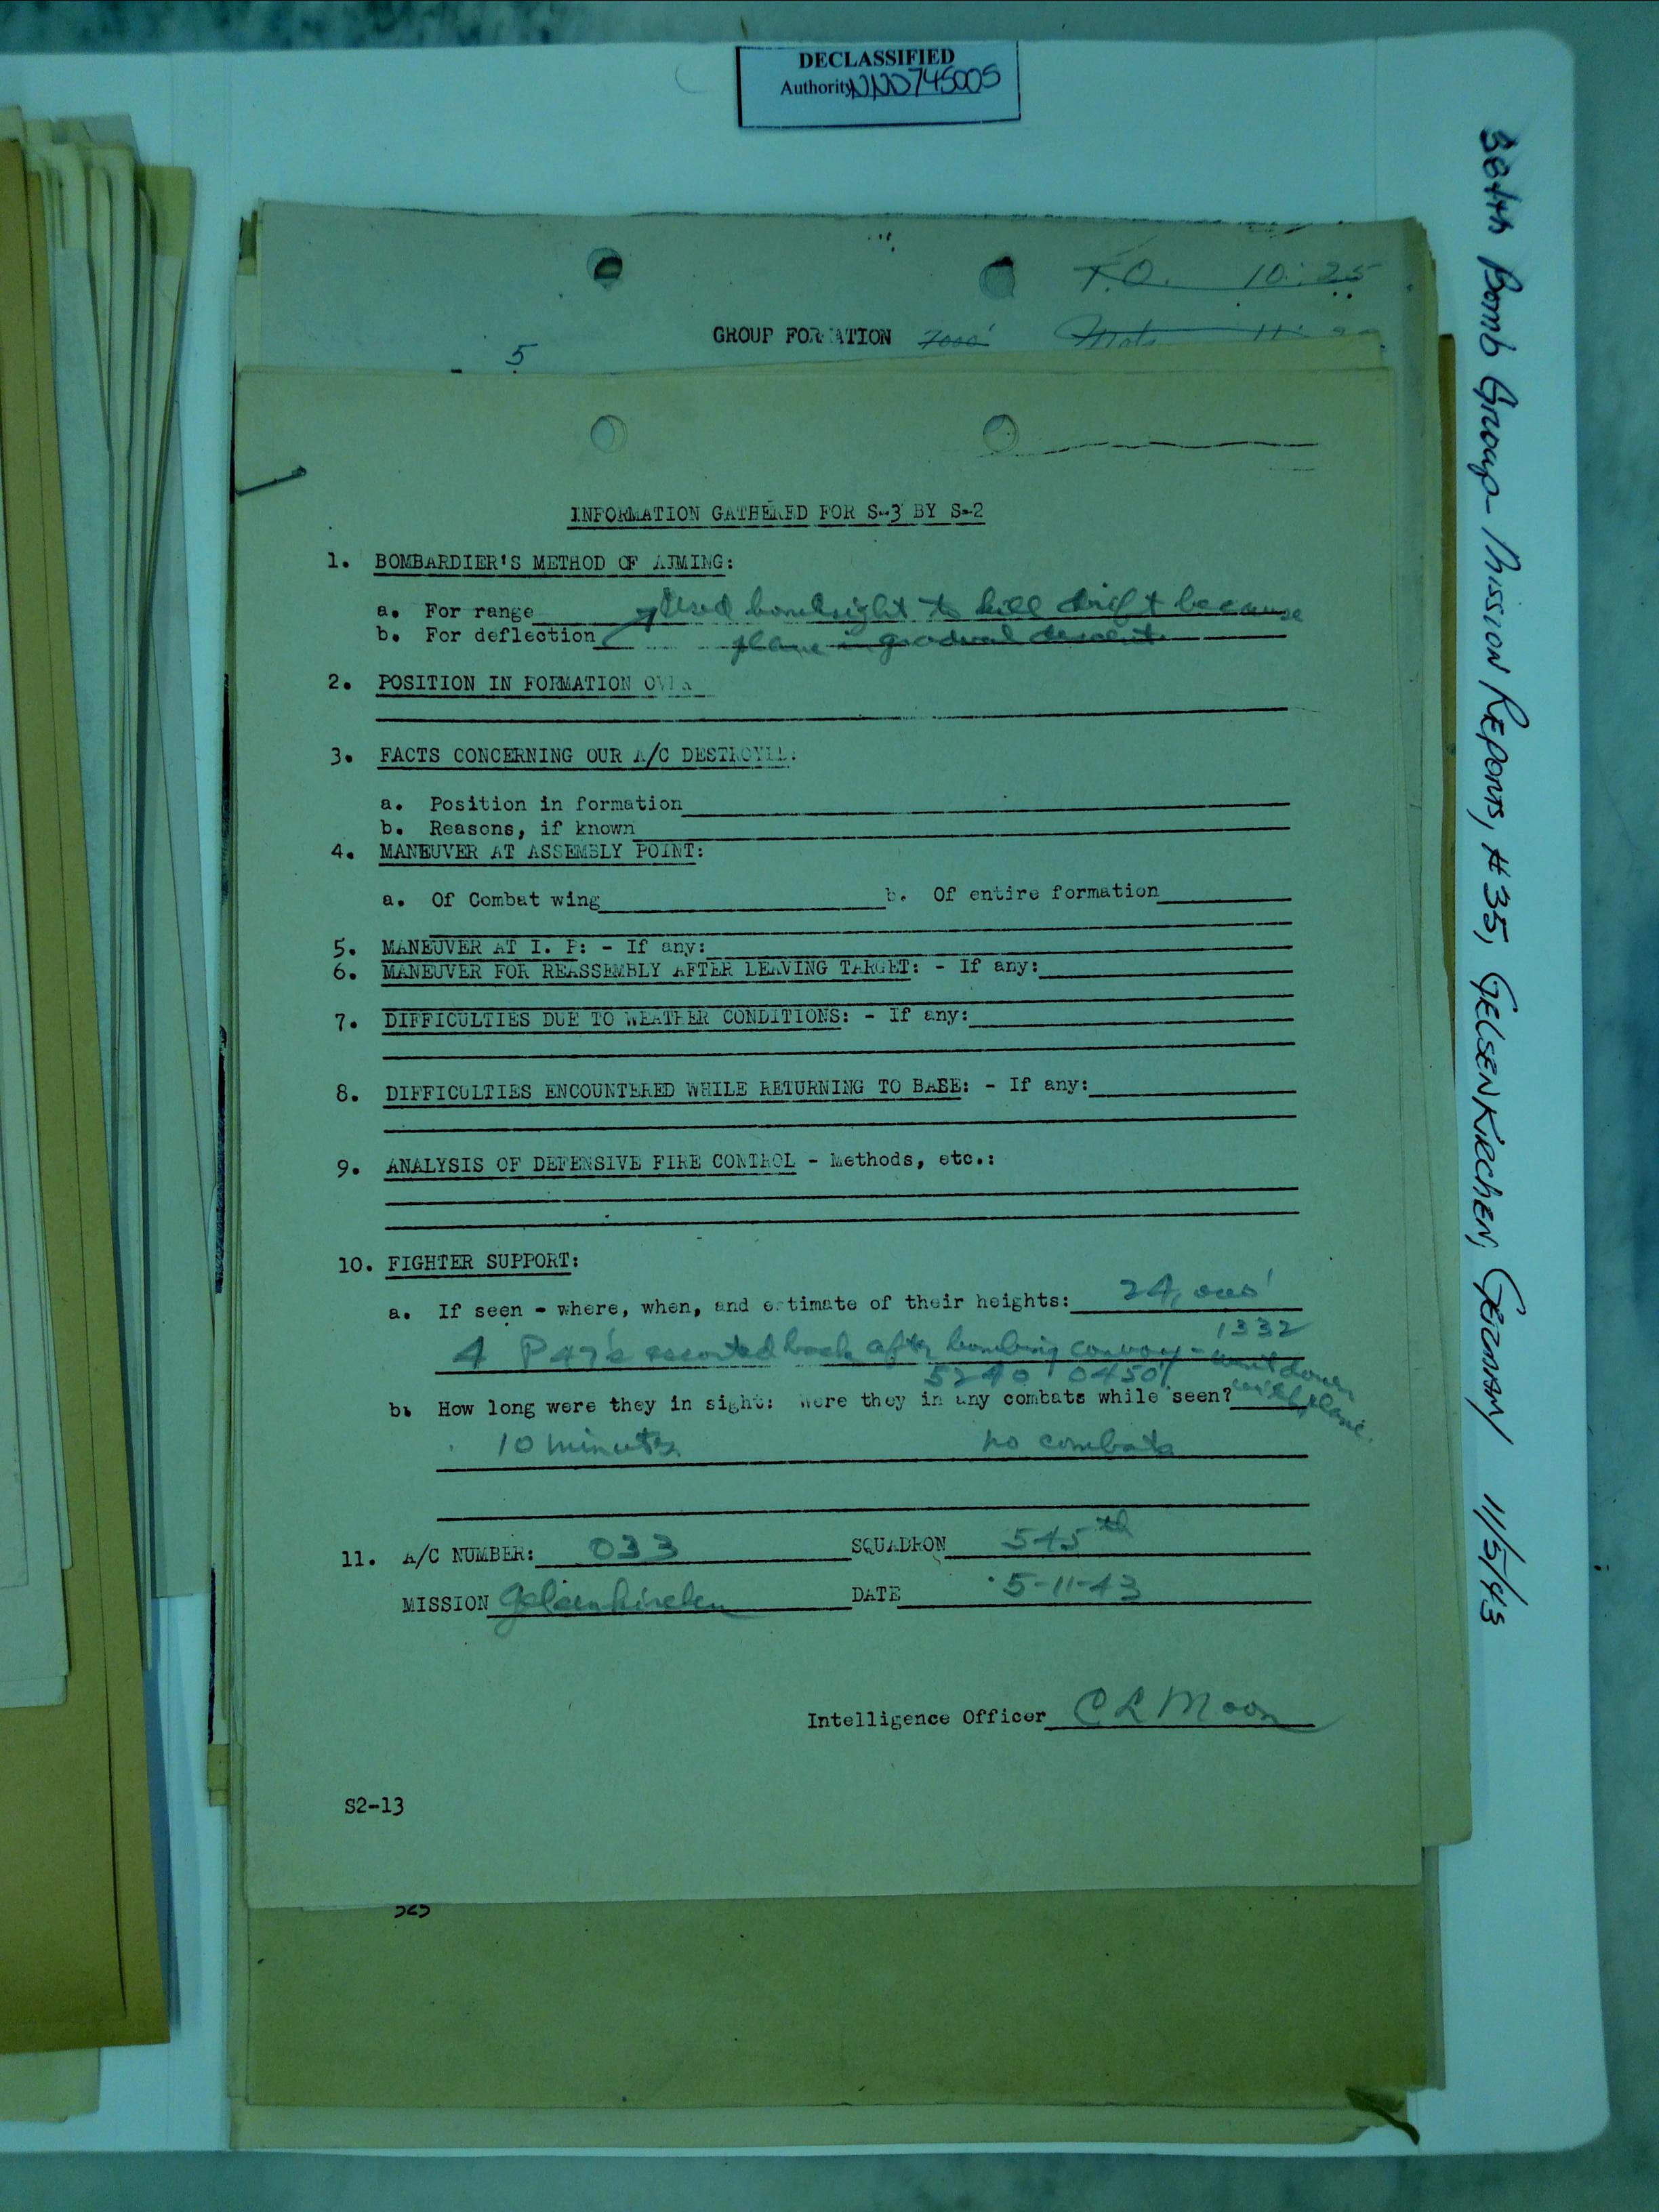 DECLASSIFIED
Authority NND745005
384th Bomb Group Mission Reports, #35, Gelsenkirchen, Germany 11/5/43
T.O. 10:25
GROUP FORMATION 7000'
5
INFORMATION GATHERED FOR S-3 BY S-2
1. BOMBARDIER'S METHOD OF AIMING:
a. For range Used bombsight to kill drift because
b. For deflection plane in gradual descent
2. POSITION IN FORMATION OVER
3. FACTS CONCERNING OUR A/C DESTROYED:
a. Position in formation
b. Reasons, if known
4. MANEUVER AT ASSEMBLY POINT:
a. Of Combat wing b. Of entire formation
5. MANEUVER AT I. P: - If any:
6. MANEUVER FOR REASSEMBLY AFTER LEAVING TARGET: - If any:
7. DIFFICULTIES DUE TO WEATHER CONDITIONS: - If any:
8. DIFFICULTIES ENCOUNTERED WHILE RETURNING TO BASE: - If any:
9. ANALYSIS OF DEFENSIVE FIRE CONTROL - Methods, etc.:
10. FIGHTER SUPPORT:
a. If seen - where, when, and estimate of their heights: 24,000'
4 P47's escorted back after bombing convoy - 1332 went down with plane.
5240 0450
b. How long were they in sight: Were they in any combats while seen?
10 minutes no combats
11. A/C NUMBER: 033 SQUADRON 545th
MISSION Gelsenkirchen DATE 5-11-43
Intelligence Officer C L Moon
S2-13